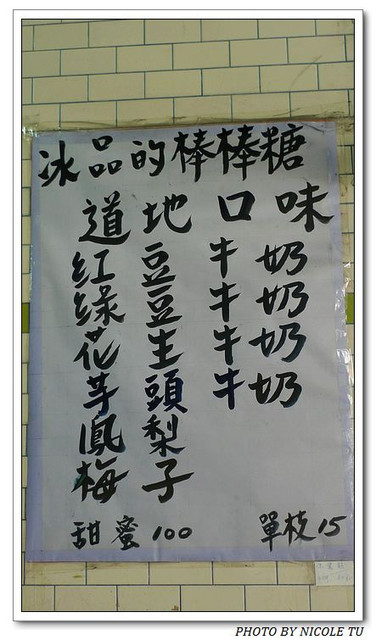 冰品的棒棒糖
道地口味
紅豆牛奶
綠豆牛奶
花生牛奶
芋頭牛奶
鳳梨
梅子
甜蜜100 單枝15
PHOTO BY NICOLE TU